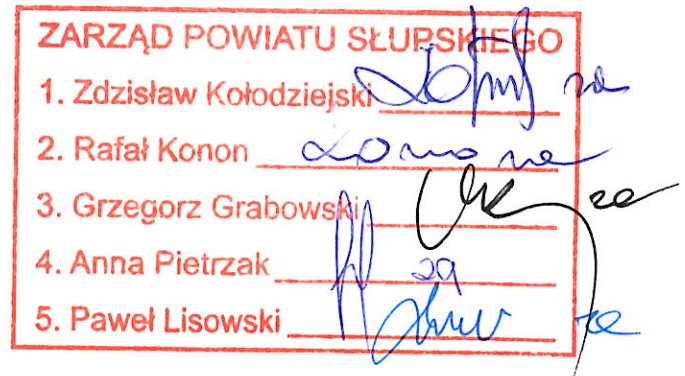 ZARZĄD POWIATU SŁUPSKIEGO
1. Zdzisław Kołodziejski
2. Rafał Konon
3. Grzegorz Grabowski
4. Anna Pietrzak za
5. Paweł Lisowski